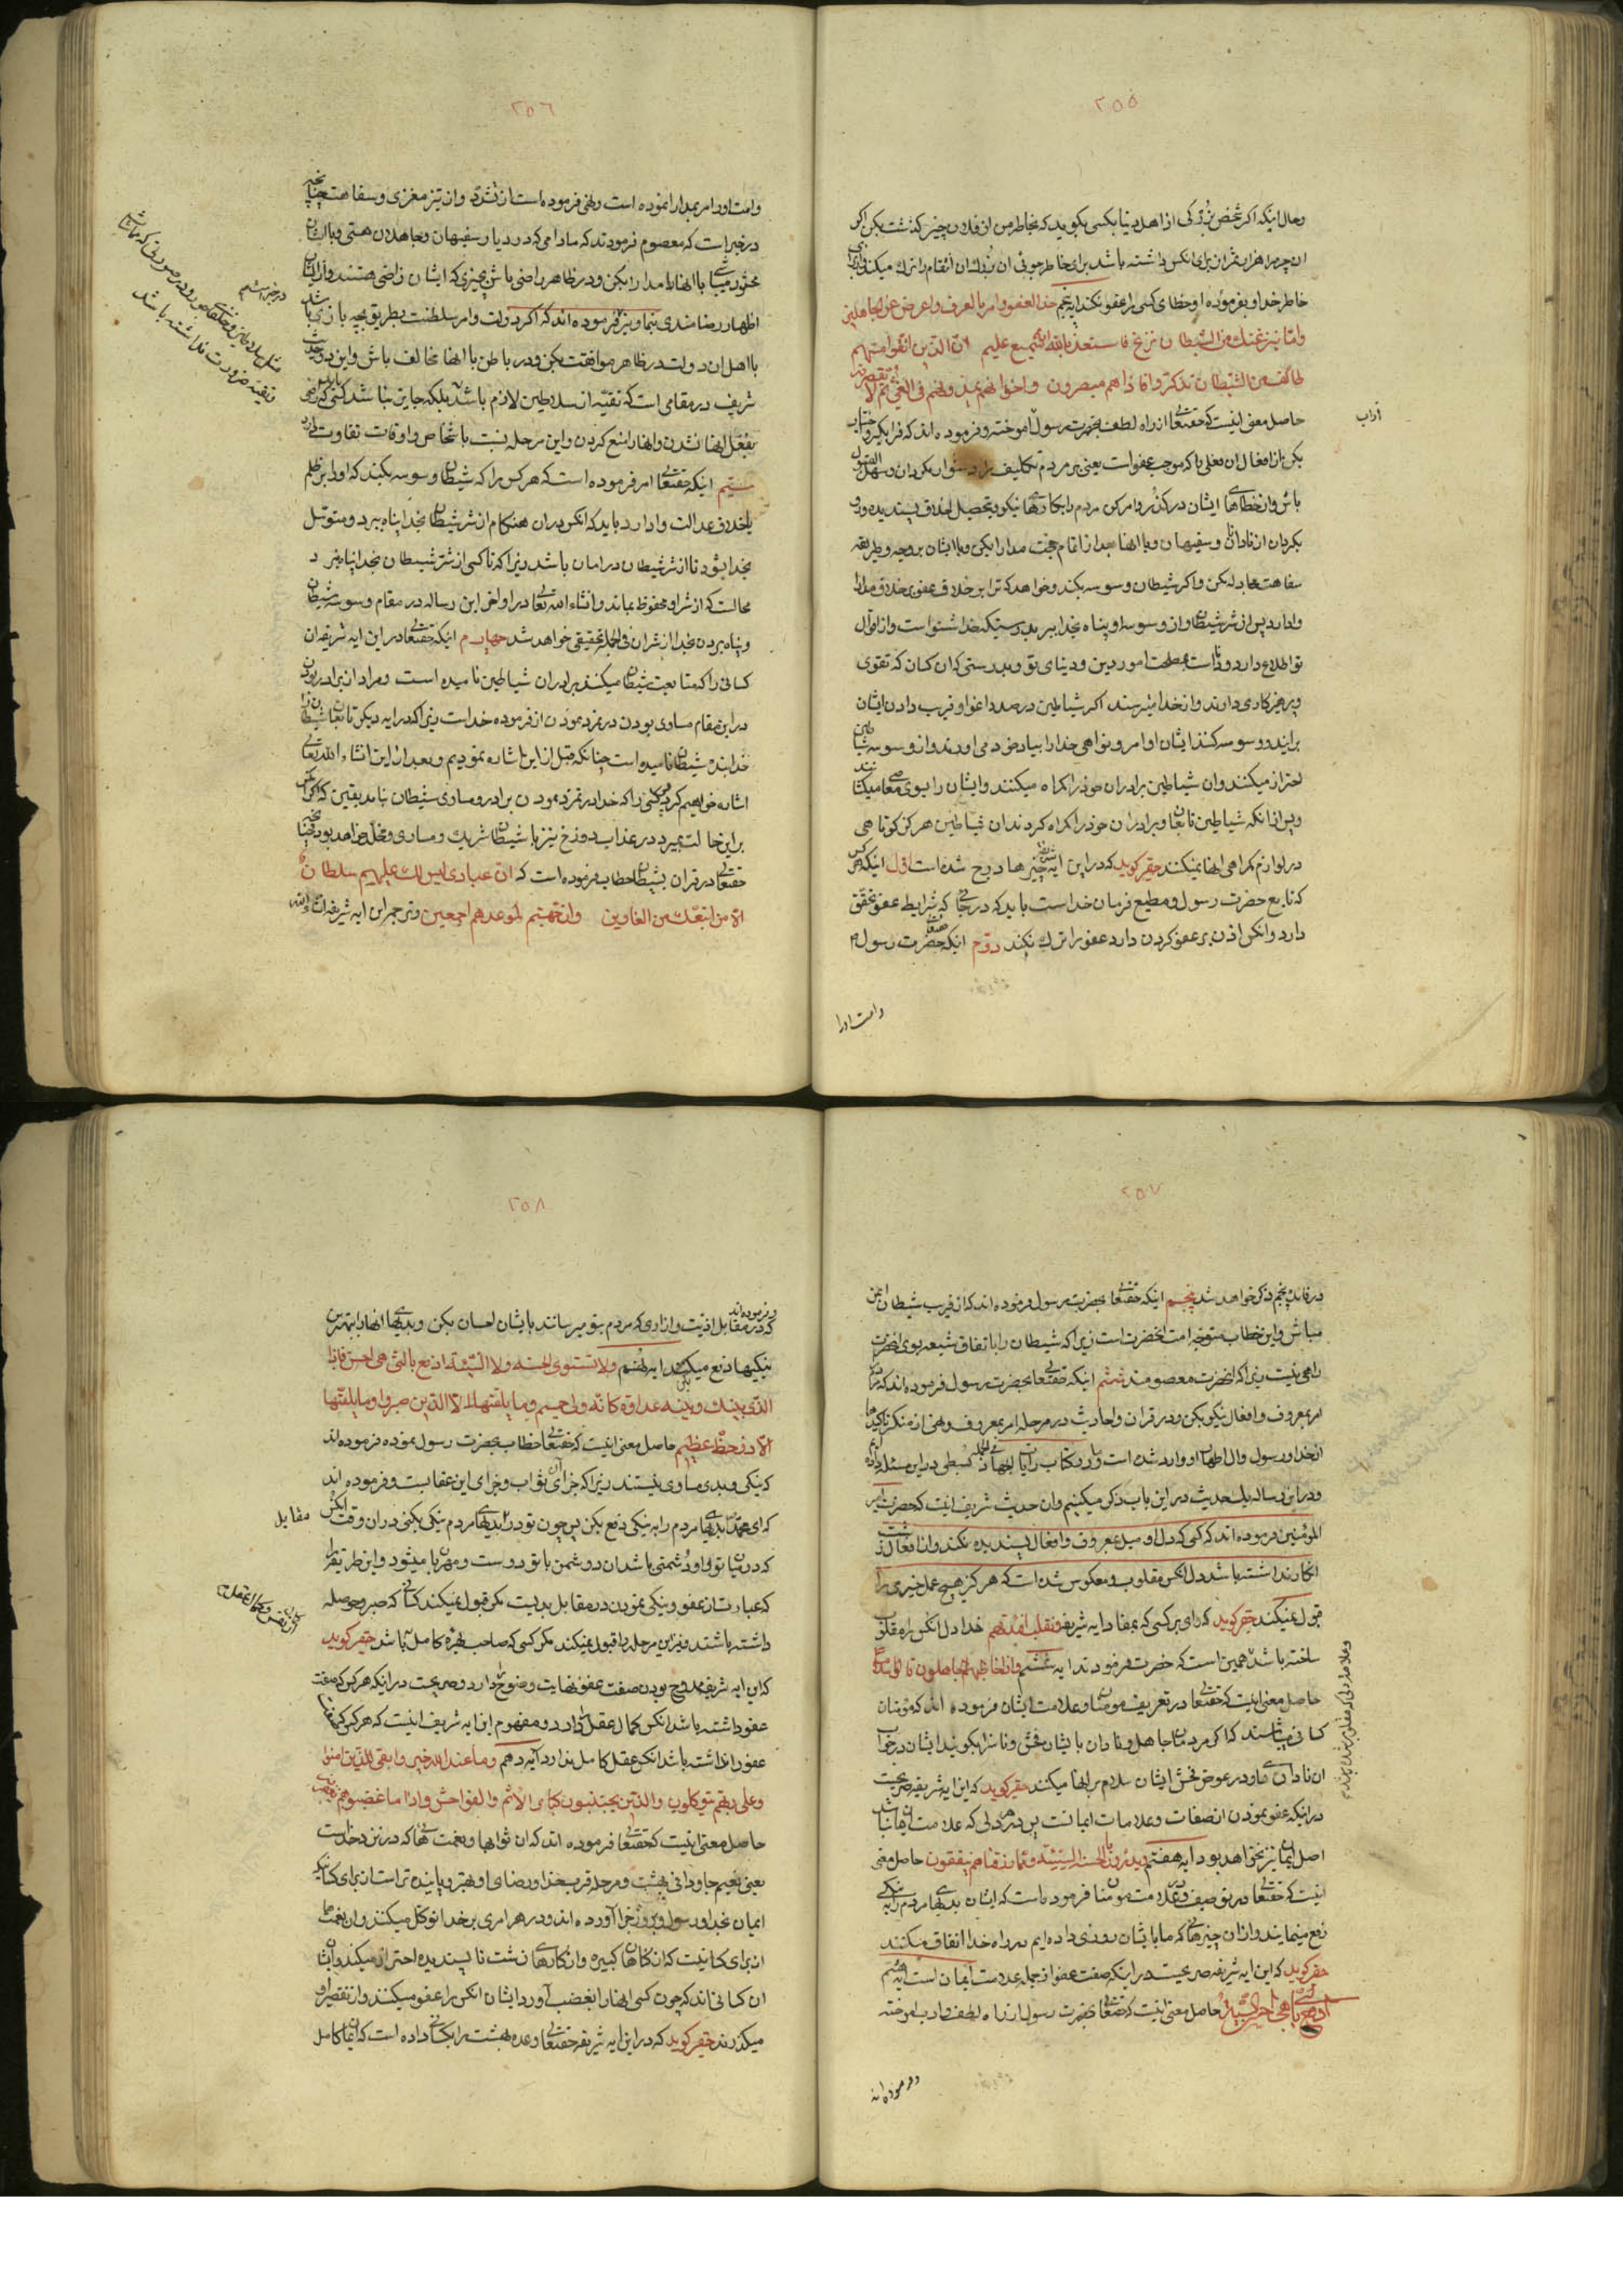 ٢٥٥
وحال اینکه اکر شخص بزرکی از اهل دنیا بکسی بکوید که بخاطر من از فلان چیز کذشت بکن اکر
خاطر خدا و بفرموده او خطای کسی را عفو نکند ایه پنجم خذ العفو وامر بالعرف واعرض عن الجاهلین
واما ینزغنک من الشیطان نزغ فاستعذ بالله انه سمیع علیم ان الذین اتقوا اذا مسهم
طائف من الشیطان تذکروا فاذا هم مبصرون واخوانهم یمدونهم فی الغی ثم لا یقصرون
حاصل معنی اینست که حقتعالی از راه لطف بحضرت رسول اموخته و فرموده اند که فرا بکیر و
اداب
باش و از خطاهای ایشان در کذر و امر کن مردم را بکارهای نیکو و بتحصیل اخلاق پسندیده و رو
بکردان از نادانان و سفیهان و با انها بعد از اتمام حجت مدارا بکن و با ایشان بر وجه و طریقه
سفاهت مجادله مکن و اکر شیطان وسوسه بکند و خواهد که ترا بر خلاف عفو و بر خلاف مدارا
وادارد پس از شر شیطان و از وسوسه او پناه بخدا ببر بدرستیکه خدا شنواست و از اقوال
تو اطلاع دارد و داناست بمصلحت امور دین و دنیای تو و بدرستی که ان کسان که تقوی
و پرهیزکاری دارند و از خدا میترسند اکر شیاطین در صدد اغوا و فریب دادن ایشان
برایند و وسوسه کنند ایشان اوامر و نواهی خدا را بیاد خود می اورند و از وسوسه شیاطین
احتراز میکنند و ان شیاطین برادران خود را کمراه میکنند و ایشان را بسوی معاصی میکشانند
و پس از انکه شیاطین تابعان و برادران خود را کمراه کردند ان شیاطین هرکز کوتاهی
در لوازم کمراهی انها نمیکنند حقیر کوید که در این ایه چیزها درج شده است اول اینکه هر کس
که تابع حضرت رسول و مطیع فرمان خداست باید که در جائی که شرایط عفو تحقق
دارد و انکس اذن بر عفو کردن دارد عفو را ترک نکند دوم اینکه حضرت رسول
وامت او را
٢٥٦
وامت او را امر بمدارا نموده است و نهی فرموده است از تشدد و از تیز مغزی و سفاهت چنانچه
در خبر است که معصوم فرمودند که مادامی که در دیار سفیهان و جاهلان هستی و با ایشان
محشور میباشی با انها مدارا بکن و در ظاهر راضی باش بچیزی که ایشان راضی هستند و از ایشان
اظهار رضامندی بنما و نیز فرموده اند که اکر دولت و امر سلطنت بطریق بچه بازی باشد
با اهل ان دولت در ظاهر موافقت بکن و در باطن با انها مخالف باش و این دو حدیث
شریف در مقامی است که تقیه از سلاطین لازم باشد بلکه جایز نباشد کسی که راضی
بفعل انها نشدن و انها را منع کردن و این مرحله نسبت باشخاص و اوقات تفاوت دارد
سیّم اینکه حقتعالی امر فرموده است که هر کس را که شیطان وسوسه بکند که او را بر ظلم
یا خلاف عدالت وادارد باید که انکس در ان هنکام از شر شیطان بخدا پناه ببرد و متوسل
بخدا بشود تا از شر شیطان در امان باشد زیرا که تا کسی از شر شیطان بخدا پناه نبرد
محالست که از شر او محفوظ بماند و انشاء الله تعالی در اواخر این رساله در مقام وسوسه شیطان
و پناه بردن بخدا از شر ان فی الجمله تحقیقی خواهد شد چهارم اینکه حقتعالی در این ایه شریفه ان
کسانی را که متابعت شیطان میکنند برادران شیاطین نامیده است و مراد از برادر بودن
در این مقام مساوی بودن در تمرد نمودن از فرموده خداست زیرا که در ایه دیکر تابعان شیطان را
خدا بنده شیطان نامیده است چنانکه قبل از این اشاره نمودیم و بعد از این انشاء الله تعالی
اشاره خواهیم کرد و کسی را که خدا در تمرد نمودن برادر و مساوی شیطان نامد یقین که اکر
بر این حالت بمیرد در عذاب دوزخ نیز با شیطان شریک و مساوی و مخلد خواهد بود چنانچه
حقتعالی در قران بشیطان خطاب فرموده است که ان عبادی لیس لک علیهم سلطان
الا من اتبعک من الغاوین وان جهنم لموعدهم اجمعین و ترجمه این ایه شریفه انشاء الله
٢٥٧
در فائده پنجم ذکر خواهد شد پنجم اینکه حقتعالی بحضرت رسول فرموده اند که از فریب شیطان ایمن
مباش و این خطاب متوجه امت انحضرت است زیرا که شیطان را باتفاق شیعه بسوی انحضرت
راهی نیست زیرا که انحضرت معصومند ششم اینکه حقتعالی بحضرت رسول فرموده اند که مردم را
امر بمعروف و افعال نیکو بکن و در قران و احادیث در مرحله امر بمعروف و نهی از منکر تاکیدها
از خدا و رسول و ال اطهار او وارد شده است
و در این رساله یک حدیث در این باب ذکر میکنیم و ان حدیث شریف اینست که حضرت امیر
المؤمنین فرموده اند که کسی که دل او میل بمعروف و افعال پسندیده نکند و از افعال زشت
انکار نداشته باشد دل انکس مقلوب و معکوس شده است که هرکز هیچ عمل خیری را
قبول نمیکند حقیر کوید که وای بر کسی که بمفاد ایه شریفه و نقلب افئدتهم خدا دل انکس را مقلوب
ساخته باشد همین است که حضرت فرمودند ایه ششم واذا خاطبهم الجاهلون قالوا سلاما
حاصل معنی اینست که حقتعالی در تعریف مومنان و علامت ایشان فرموده اند که مؤمنان
کسانی میباشند که اکر مردمان جاهل و نادان با ایشان فحش و ناسزا بکویند ایشان در جواب
ان نادانان و در عوض فحش ایشان سلام بر انها میکنند حقیر کوید که این ایه شریفه صریحست
در اینکه عفو نمودن از صفات و علامات ایمانست پس در هر دلی که علامت ایمان نباشد
اصل ایمان نیز نخواهد بود ایه هفتم ویدرؤن بالحسنة السیئة ومما رزقناهم ینفقون حاصل معنی
اینست که حقتعالی در توصیف و علامت مومنان فرموده است که ایشان بدیهای مردم را به نیکی
دفع مینمایند و از ان چیزهائی که ما با ایشان روزی داده ایم در راه خدا انفاق میکنند
حقیر کوید که این ایه شریفه صریحست در اینکه صفت عفو از جمله علامت ایمان است ایه هشتم
حاصل معنی اینست که حقتعالی بحضرت رسول از راه لطف و ادب اموخته
و فرموده اند
٢٥٨
و فرموده اند
که در مقابل اذیت و ازاری که مردم بتو میرسانند با ایشان احسان بکن و بدیهای انها را بهترین
نیکیها دفع میکن ایه نهم ولا تستوی الحسنة ولا السیئة ادفع بالتی هی احسن فاذا
الذی بینک وبینه عداوة کانه ولی حمیم وما یلقیها الا الذین صبروا وما یلقیها
الا ذو حظ عظیم حاصل معنی اینست که حقتعالی خطاب بحضرت رسول نموده فرموده اند
که نیکی و بدی مساوی نیستند زیرا که جزای ان ثواب و جزای این عقابست و فرموده اند
که ای محمد بدیهای مردم را به نیکی دفع بکن پس چون تو در مقابل بدیهای مردم نیکی بکنی در ان وقت انکس
مقابل
که در میان تو و او دشمنی باشد ان دشمن با تو دوست و مهربان میشود و این طریقه را
که عبارت از عفو و نیکی نمودن در مقابل بدیست مکر قبول نمیکند کسانی که صبر و حوصله
داشته باشند و نیز این مرحله را قبول نمیکند مکر کسی که صاحب بهره کامل باشد حقیر کوید
که این ایه شریفه در ممدوح بودن صفت عفو نهایت وضوح دارد و صریحست در اینکه هر کس که صفت
عفو داشته باشد انکس کمال عقل را دارد و مفهوم این ایه شریفه اینست که هر کسی که صفت
عفو را نداشته باشد انکس عقل کامل ندارد ایه دهم وما عند الله خیر وابقی للذین امنوا
وعلی ربهم یتوکلون والذین یجتنبون کبائر الاثم والفواحش واذا ما غضبوا هم یغفرون
حاصل معنی اینست که حقتعالی فرموده اند که ان ثوابها و نعمتهائی که در نزد خداست
یعنی نعیم جاودانی بهشت و مرحله قرب خدا و رضای او بهتر و پاینده تر است از برای کسانیکه
ایمان بخدا و رسول و بروز جزا آورده اند و در هر امری بر خدا توکل میکنند و ان نعمتها
از برای کسانیست که از کناهان کبیره و از کارهای زشت ناپسندیده احتراز میکنند و ایشان
ان کسانی اند که چون کسی انها را بغضب آورد ایشان انکس را عفو میکنند و از تقصیر او
میکذرند حقیر کوید که در این ایه شریفه حقتعالی وعده بهشت را بکسانی داده است که ایمان کامل